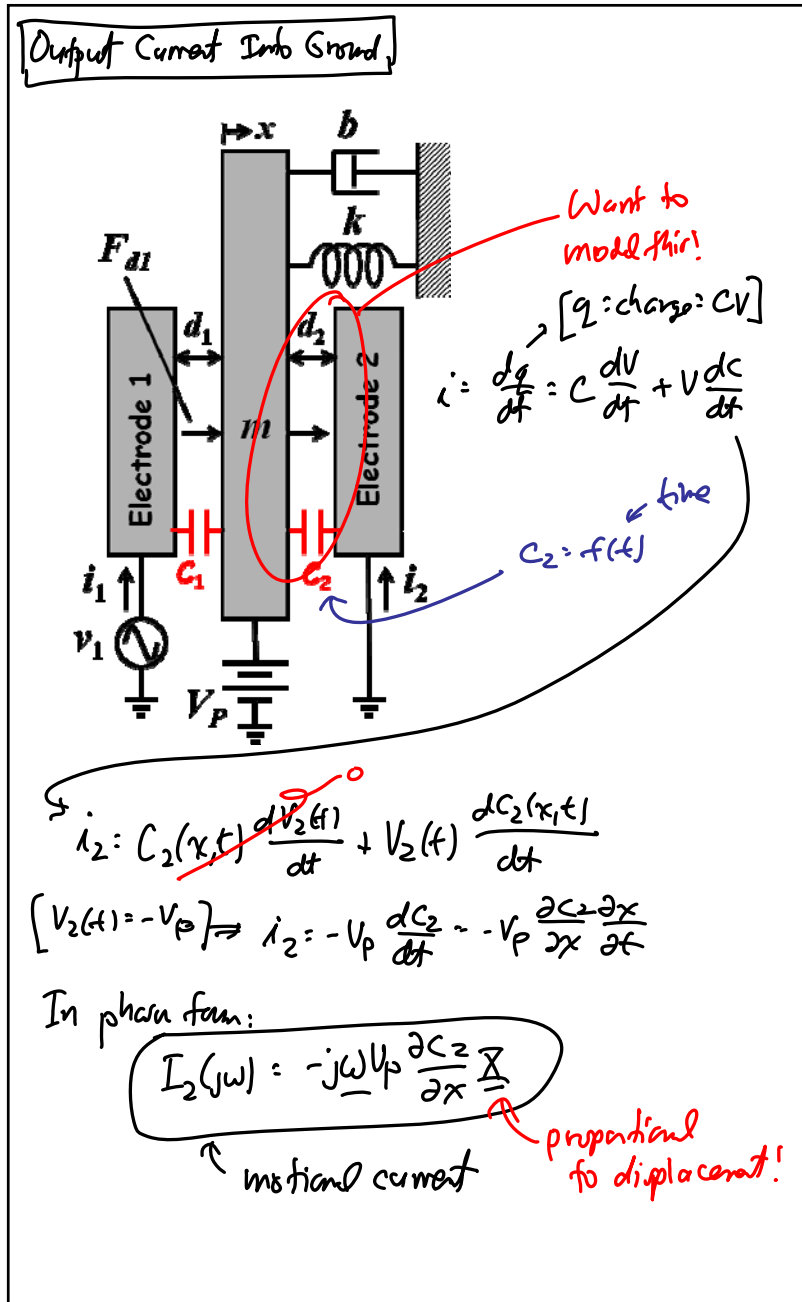 Output Current Into Ground
x
b
k
F_{d1}
d_1
d_2
Electrode 1
m
Electrode 2
C_1
C_2
i_1
i_2
v_1
V_P
Want to
model this!
[q = charge = CV]
i = \frac{dq}{dt} = C \frac{dV}{dt} + V \frac{dC}{dt}
time
C_2 = f(t)
i_2 = C_2(x,t) \frac{dV_2(t)}{dt} + V_2(t) \frac{dC_2(x,t)}{dt}
0
[V_2(t) = -V_P] ⇒ i_2 = -V_P \frac{dC_2}{dt} = -V_P \frac{∂C_2}{∂x} \frac{∂x}{∂t}
In phasor form:
I_2(jω) = -jωV_P \frac{∂C_2}{∂x} X
motional current
proportional
to displacement!